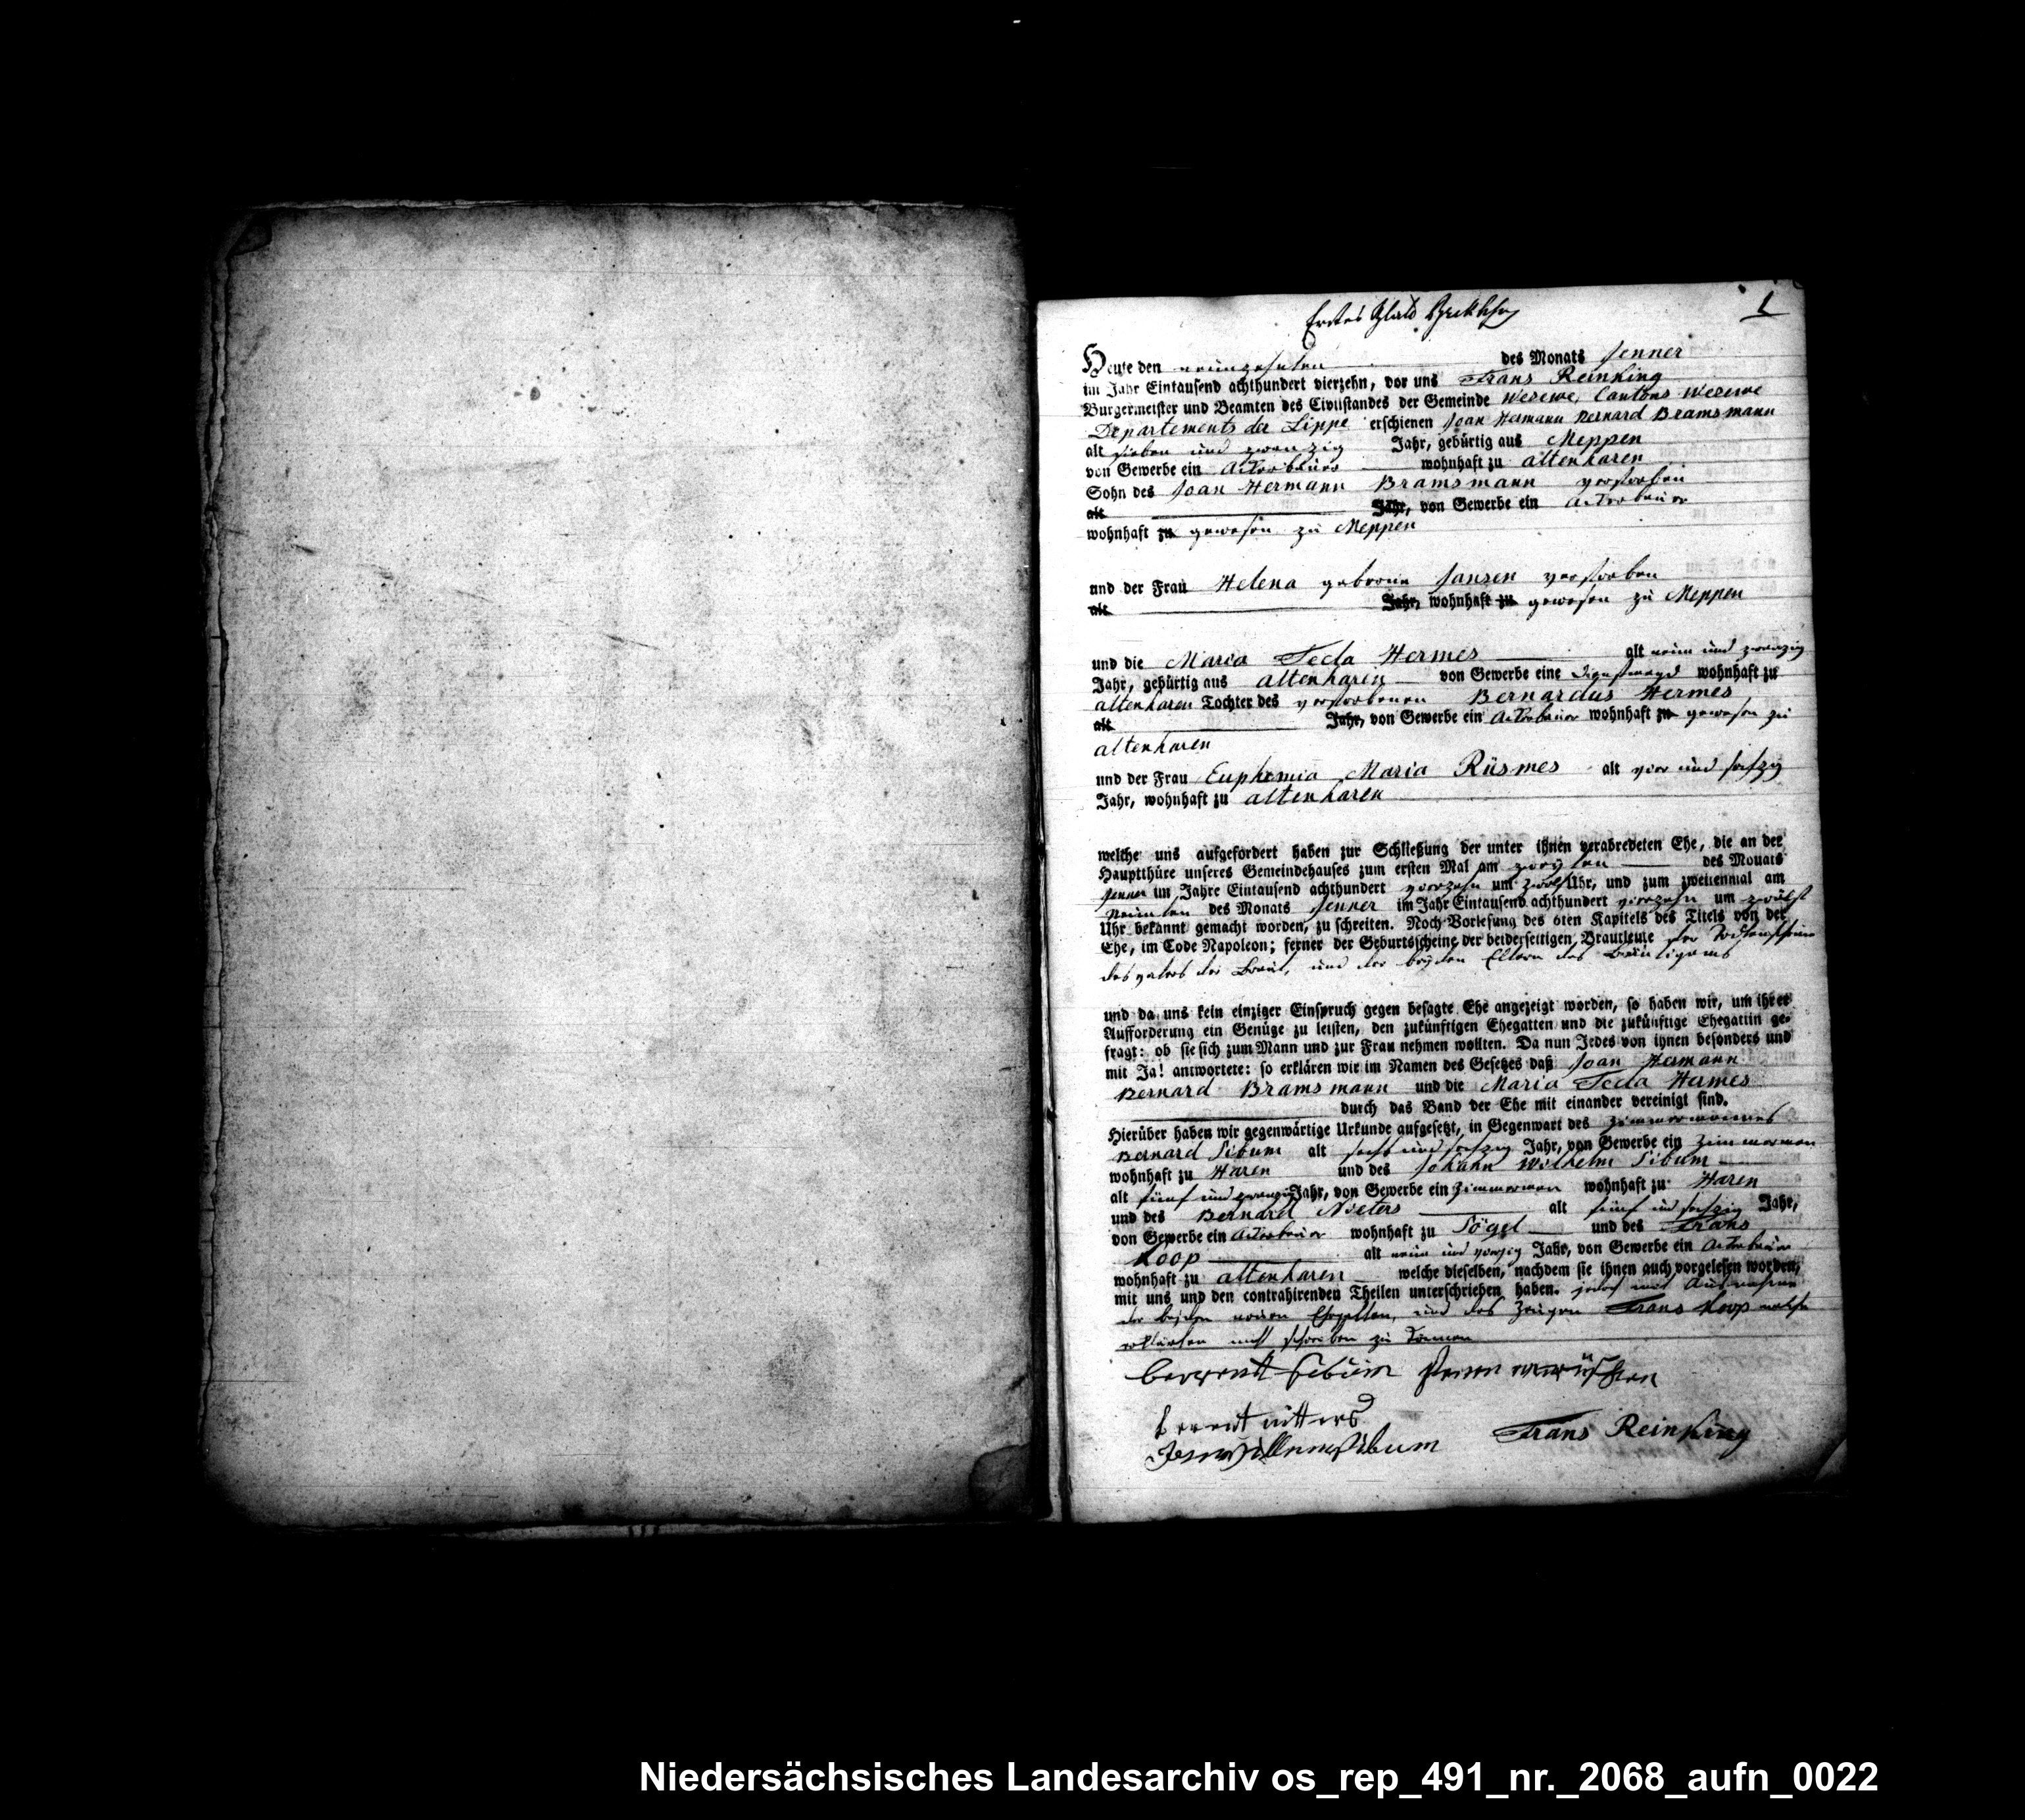 Erstes Blatt
1
Heute den neunzehnten des Monats Jenner
im Jahr Eintausend achthundert vierzehn, vor uns Frans Reinking
Burgermeister und Beamten des Civilstandes der Gemeinde Wesewe, Cantons Wesewe
Departements der Lippe erschienen Joan Hermann Bernard Bramsmann
alt sieben und zwanzig Jahr, gebürtig aus Meppen
von Gewerbe ein Ackerbauer wohnhaft zu altenharen
Sohn des Joan Hermann Bramsmann verstorben
alt Jahr, von Gewerbe ein Ackerbauer
wohnhaft zu gewesen zu Meppen
und der Frau Helena geborne Jansen verstorben
alt Jahr, wohnhaft zu gewesen zu Meppen
und die Maria Tecla Hermes alt neun und zwanzig
Jahr, gebürtig aus altenharen von Gewerbe eine Dienstmagd wohnhaft zu
altenharen Tochter des verstorbenen Bernardus Hermes
alt Jahr, von Gewerbe ein Ackerbauer wohnhaft zu gewesen zu
altenharen
und der Frau Euphemia Maria Rüsmes alt vier und sechzig
Jahr, wohnhaft zu altenharen
welche uns aufgefordert haben zur Schließung der unter ihnen verabredeten Ehe, die an der
Hauptthüre unseres Gemeindehauses zum ersten Mal am zweyten des Monats
Jenner im Jahre Eintausend achthundert vierzehn um zwölf Uhr, und zum zweitenmal am
neunten des Monats Jenner im Jahr Eintausend achthundert vierzehn um zwölf
Uhr bekannt gemacht worden, zu schreiten. Noch Vorlesung des 6ten Kapitels des Titels von der
Ehe, im Code Napoleon; ferner der Geburtsscheine der beiderseitigen Brautleute der Todtenscheine
des vaters der Braut, und der beyden Eltern des Bräutigams
und da uns kein einziger Einspruch gegen besagte Ehe angezeigt worden, so haben wir, um ihrer
Aufforderung ein Genüge zu leisten, den zukünftigen Ehegatten und die zukünftige Ehegattin ge-
fragt: ob sie sich zum Mann und zur Frau nehmen wollten. Da nun Jedes von ihnen besonders und
mit Ja! antwortete: so erklären wir im Namen des Gesetzes daß Joan Hermann
Bernard Bramsmann und die Maria Tecla Hermes
durch das Band der Ehe mit einander vereinigt sind.
Hierüber haben wir gegenwärtige Urkunde aufgesetzt, in Gegenwart des Zimmermannes
Bernard Sibum alt sechs und sechzig Jahr, von Gewerbe ein Zimmerman
wohnhaft zu Haren und des Johann Wilhelm Sibum
alt fünf und zwanzig Jahr, von Gewerbe ein Zimmerman wohnhaft zu Haren
und des Bernard Nieters alt fünf und sechzig Jahr,
von Gewerbe ein Ackerbauer wohnhaft zu Sögel und des Frans
Koop alt neun und vierzig Jahr, von Gewerbe ein Ackerbauer
wohnhaft zu altenharen welche dieselben, nachdem sie ihnen auch vorgelesen worden,
mit uns und den contrahirenden Theilen unterschrieben haben. jedoch mit Ausnahme
der beyden neuen Ehegatten, und des Zeugen Frans Koop welche
erklärten nicht schreiben zu können
berrent sibum
berent nitters
Jan willem sibum Frans Reinking
Niedersächsisches Landesarchiv os_rep_491_nr._2068_aufn_0022